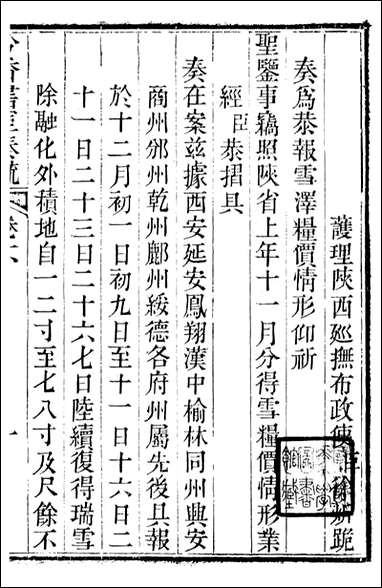 護理陝西廵撫布政使臣徐炘跪
奏爲恭報雪澤糧價情形仰祈
聖鑒事竊照陝省上年十一月分得雪糧價情形業
經臣恭摺具
奏在案兹據西安延安鳳翔漢中榆林同州興安
商州邠州乾州鄜州綏德各府州屬先後具報
於十二月初一日初九日至十一日十六日二
十一日二十三日二十六七日陸續復得瑞雪
除融化外積地自一二寸至七八寸及尺餘不